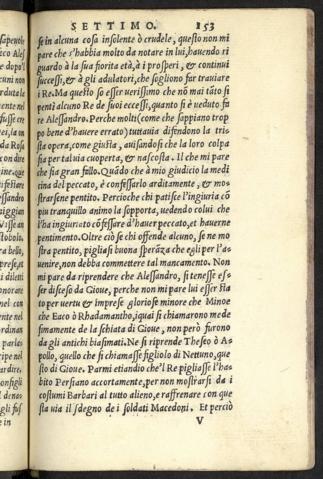 SETTIMO. 153
se in alcuna cosa insolente ò crudele, questo non mi
pare che s'habbia molto da notare in lui, hauendo ri
guardo à la sua fiorita età, à i prosperi, & continui
successi, & à gli adulatori, che sogliono far trauiare
i Re. Ma questo so esser uerissimo che nõ mai tãto si
penti alcuno Re de suoi eccessi, quanto si è ueduto fa
re Alessandro. Perche molti (come che sappiano trop
po bene d'hauere errato) tuttauia difendono la tri-
sta opera, come giusta, auisandosi che la loro colpa
sia per tal uia cuoperta, & nascosta. Il che mi pare
che sia gran fallo. Quãdo che à mio giudicio la medi
cina del peccato, è confessarlo arditamente, & mo-
strarsene pentito. Percioche chi patisce l'ingiuria cõ
piu tranquillo animo la sopporta, uedendo colui che
l'ha ingiuriato cõfessare d'hauer peccato, et hauerne
pentimento. Oltre ciò se chi offende alcuno, se ne mo
stra pentito, pigliasi buona sperãza che egli per l'a-
uenire, non debba commettere tal mancamento. Non
mi pare da riprendere che Alessandro, si tenesse es-
ser disceso da Gioue, perche non mi pare lui esser sta
to per uertu & imprese gloriose minore che Minoe
che Eaco ò Rhadamantho, iquai si chiamarono mede
simamente de la schiata di Gioue, non però furono
da gli antichi biasimati. Ne si riprende Theseo ò A-
pollo, quello che si chiamasse figliolo di Nettuno, que
sto di Gioue. Parmi etiandio che'l Re pigliasse l'ha-
bito Persiano accortamente, per non mostrarsi da i
costumi Barbari al tutto alieno, e raffrenare con que
sta uia il sdegno de i soldati Macedoni. Et perciò
V